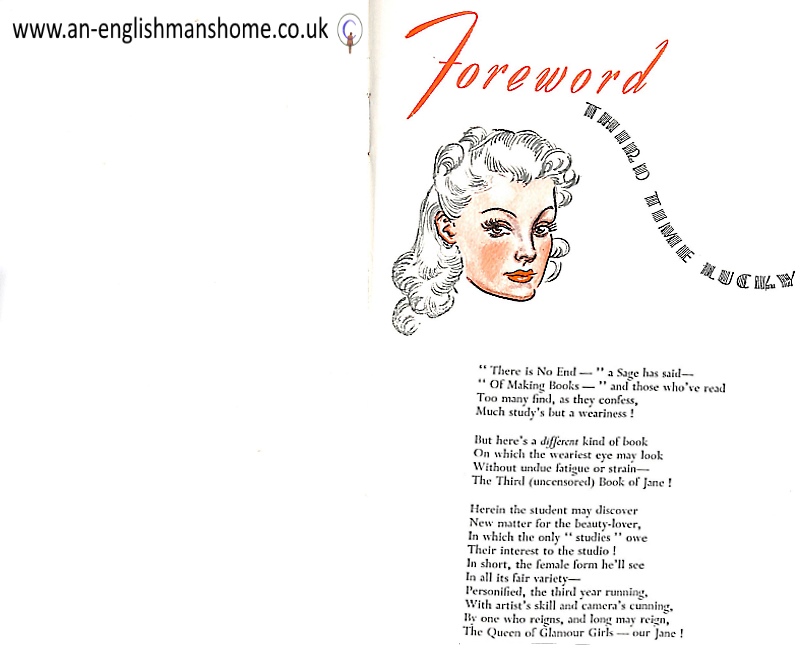 www.an-englishmanshome.co.uk
Foreword
THIRD TIME LUCKY
" There is No End — " a Sage has said—
" Of Making Books — " and those who've read
Too many find, as they confess,
Much study's but a weariness !
But here's a different kind of book
On which the weariest eye may look
Without undue fatigue or strain—
The Third (uncensored) Book of Jane !
Herein the student may discover
New matter for the beauty-lover,
In which the only " studies " owe
Their interest to the studio !
In short, the female form he'll see
In all its fair variety—
Personified, the third year running,
With artist's skill and camera's cunning,
By one who reigns, and long may reign,
The Queen of Glamour Girls — our Jane !